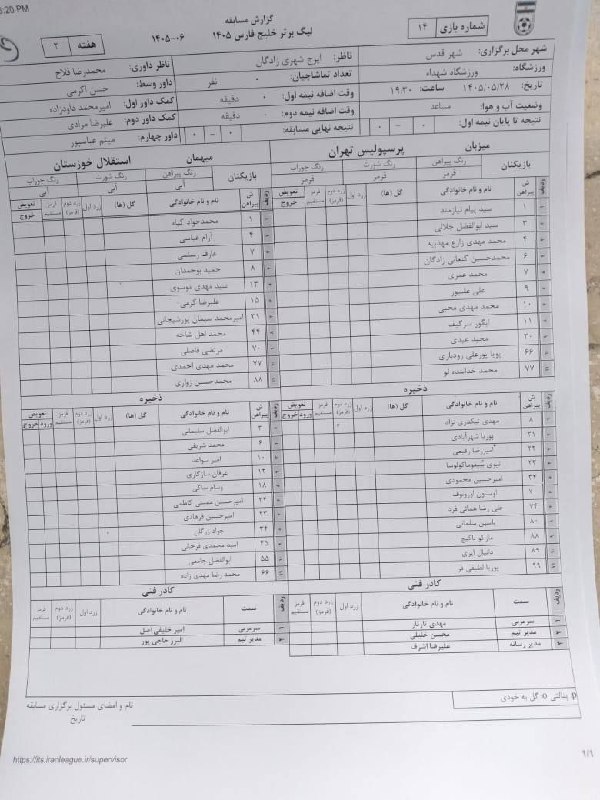 5:20 PM
گزارش مسابقه
لیگ برتر خلیج فارس ۱۴۰۵ ۱۴۰۵-۰۶
شماره بازی: ۱۴
هفته ۲
شهر محل برگزاری: شهر قدس
ورزشگاه: ورزشگاه شهداء
تاریخ: ۱۴۰۵.۰۵.۲۸ ساعت: ۱۹:۳۰
وضعیت آب و هوا: مساعد
نتیجه تا پایان نیمه اول: ۰ ۰
ناظر: ایرج شهری زادگان
تعداد تماشاچیان: ۰ نفر
وقت اضافه نیمه اول: ۰ دقیقه
وقت اضافه نیمه دوم: ۰ دقیقه
نتیجه نهایی مسابقه: ۰ - ۰
ناظر داوری: محمدرضا فلاح
داور وسط: حسن اکرمی
کمک داور اول: امیرمحمد داودزاده
کمک داور دوم: علیرضا مرادی
داور چهارم: میثم عباسپور
میزبان پرسپولیس تهران
بازیکنان
رنگ پیراهن رنگ شورت رنگ جوراب
قرمز قرمز قرمز
ردیف ش پیراهن نام و نام خانوادگی گل (ها) زرد اول زرد دوم (قرمز) قرمز مستقیم تعویض خروج
سید پیام نیازمند
۳ سید ابوالفضل جلالی
محمد مهدی زارع مهذبیه
۶ محمدحسین کنعانی زادگان
محمد عمری
۹ علی علیپور
۱۰ محمد مهدی محبی
۱۱ ایگور سرگیف
۲۰ مجید عیدی
۶۶ پویا پورعلی رودباری
۷۷ محمد خداینده لو
ذخیره
ردیف ش پیراهن نام و نام خانوادگی گل (ها) زرد اول زرد دوم (قرمز) قرمز مستقیم تعویض ورود خروج
۸ مهدی تیکدری نژاد
۲۱ پوریا شهرآبادی
امیررضا رفیعی
۲۲
امیرحسین محمودی
اوستون اورونوف
علی رضا همائی فرد
۸۰ یاسین سلمانی
۸۸ مارکو باکیچ
۸۹ دانیال ایری
پوریا لطیفی فر
کادر فنی
ردیف سمت نام و نام خانوادگی زرد اول زرد دوم (قرمز) قرمز مستقیم
۱ سرمربی مهدی تارتار
۲ مدیر تیم محسن خلیلی
۳ مدیر رسانه علیرضا اشرف
میهمان استقلال خوزستان
بازیکنان
رنگ پیراهن رنگ شورت رنگ جوراب
آبی آبی آبی
ردیف ش پیراهن نام و نام خانوادگی گل (ها) زرد اول زرد دوم (قرمز) قرمز مستقیم تعویض خروج
۱ محمدجواد کیاه
۴ آرام عباسی
۷ عارف رستمی
۸ حمید بوحمدان
۱۳ سید مهدی موسوی
۱۵ علیرضا کرمی
۲۱ امیرمحمد سیمان پورشیجانی
۴۴ محمد اهل شاخه
۷۰ مرتضی فاضلی
۲۷ محمد مهدی احمدی
۸۸ محمد حسین زواری
ذخیره
ردیف ش پیراهن نام و نام خانوادگی گل (ها) زرد اول زرد دوم (قرمز) قرمز مستقیم تعویض ورود خروج
۳ ابوالفضل سلیمانی
۶ محمد شریفی
۱۰
۱۴ عرفان سازگاری
۱۸
۲۲ امیر حسین عیسی کاظمی
امیرحسین فرهادی
۳۴ جواد زرگان
سید محمدی فرخانی
۵۵ ابوالفضل جاسمی
۶۶ محمد رضا مهدی زاده
کادر فنی
ردیف سمت نام و نام خانوادگی زرد اول زرد دوم (قرمز) قرمز مستقیم
۱ سرمربی امیر خلیفه اصل
۲ مدیر تیم البرز حاجی پور
p: پنالتی o: گل به خودی
نام و امضای مسئول برگزاری مسابقه
تاریخ
https://its.iranleague.ir/supervisor
۱/۱